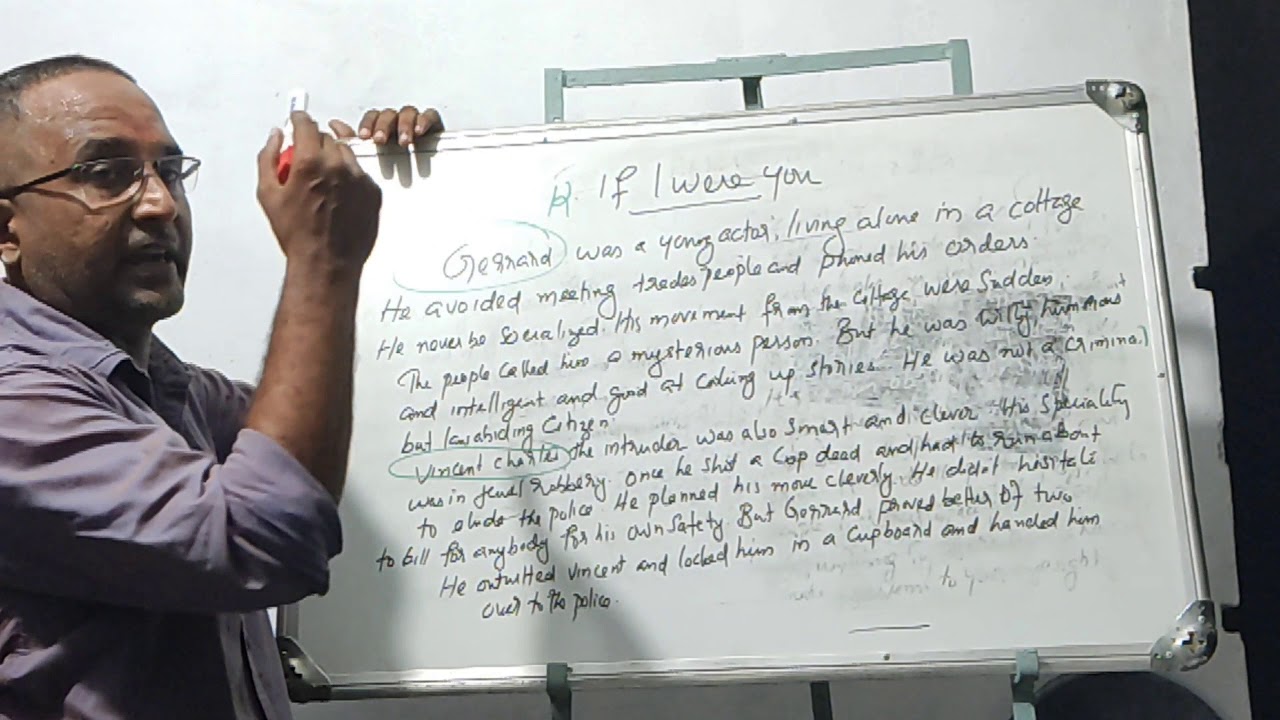 If I were you
Gerrard was a young actor, living alone in a cottage
He avoided meeting tradespeople and phoned his orders.
He never be socialized. His movement from the cottage were sudden.
The people called him a mysterious person. But he was witty, humorous
and intelligent and good at cooking up stories. He was not a criminal
but lawabiding citizen.
Vincent charles the intruder was also smart and clever. His speciality
was in jewel robbery. once he shot a cop dead and had to run about
to elude the police. He planned his move cleverly. He didot hisitate
to bill for anybody for his own safety. But Gerrard proved better of two
He outwitted vincent and locked him in a cupboard and handed him
over to the police.